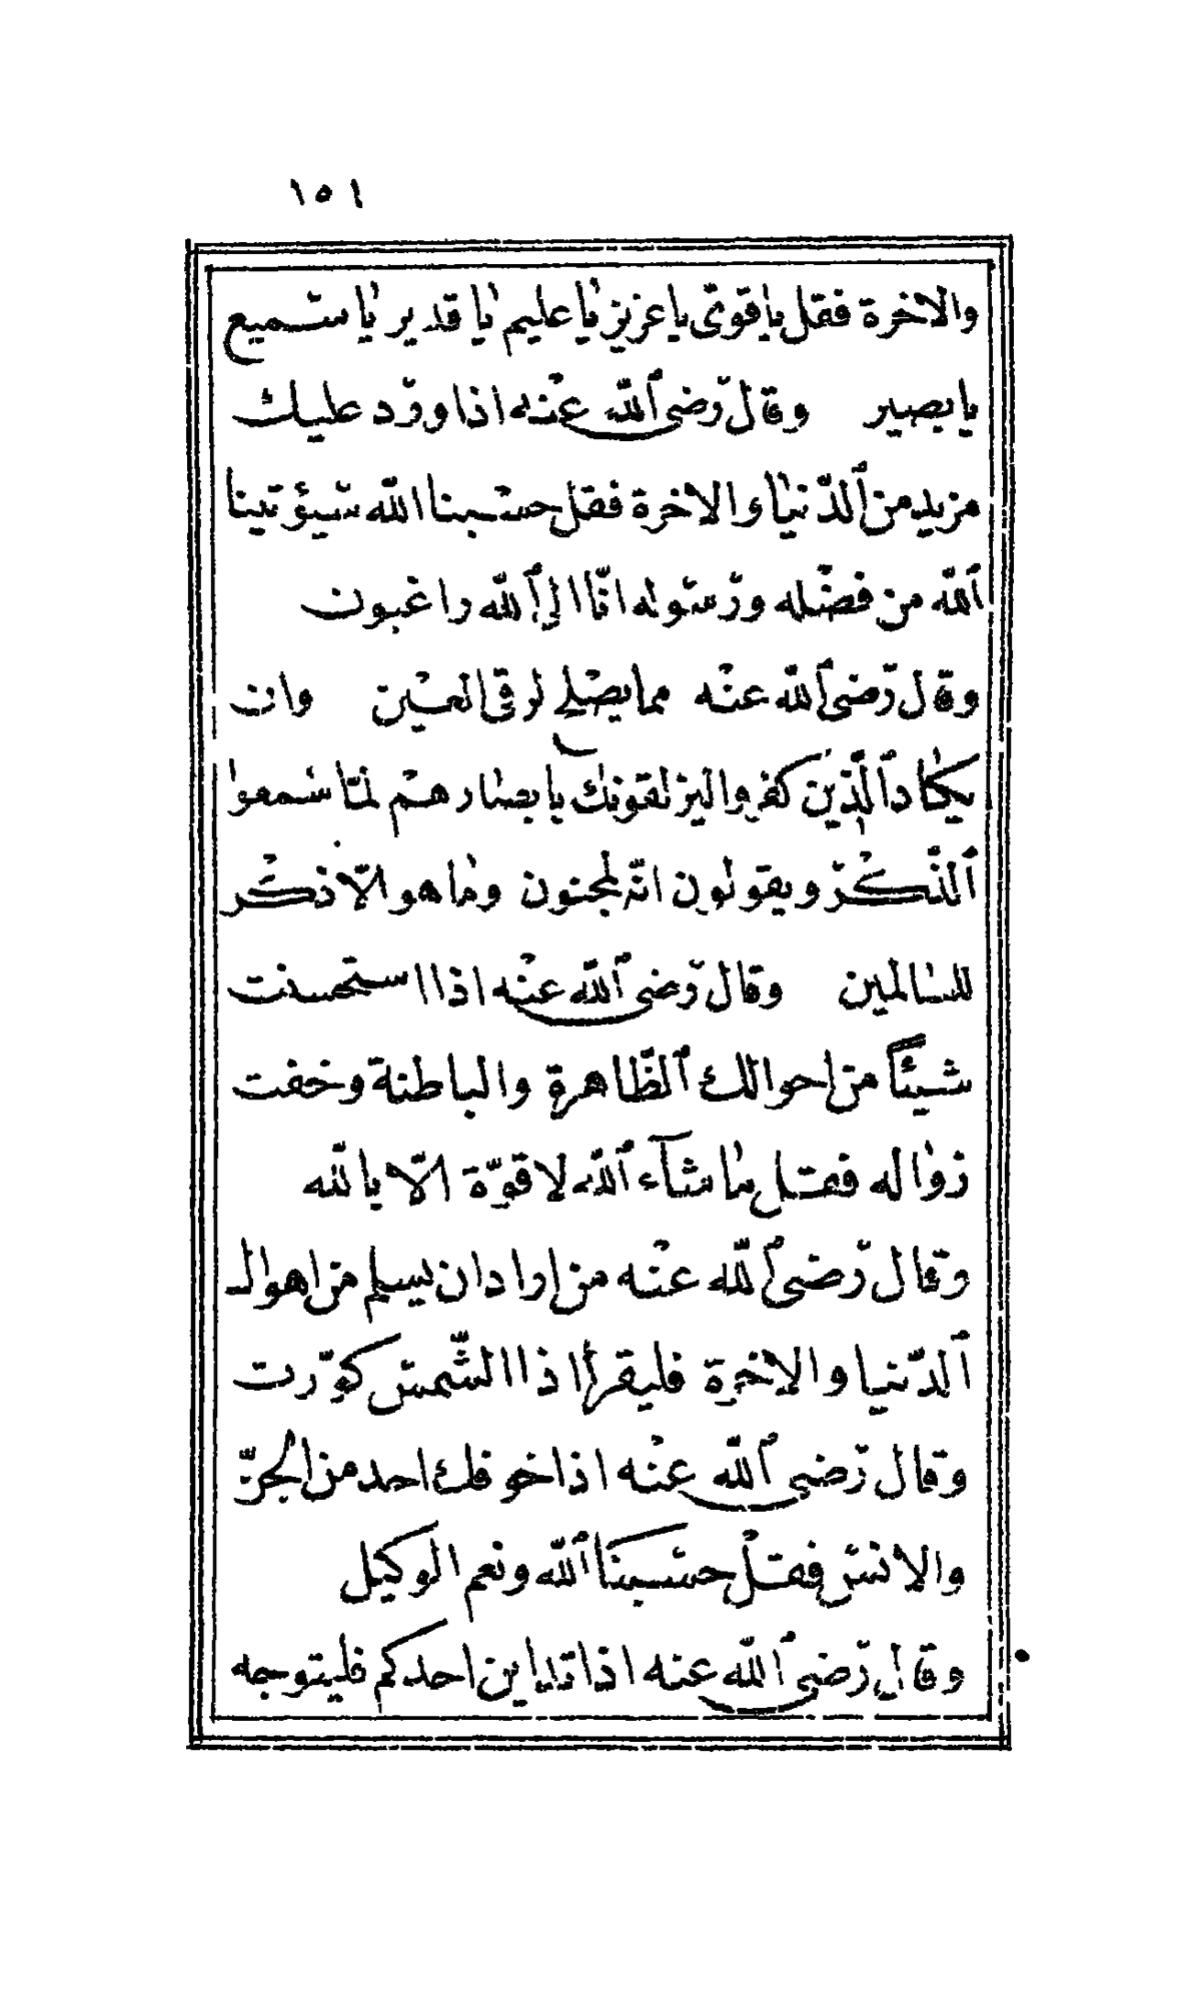 ١٥١
والاخرة فقل ياقوى ياعزيز ياعليم يا قدير يا سميع
يابصير وقال رضى الله عنه اذا ورد عليك
مزيد من الدنيا والاخرة فقل حسبنا الله سيؤتينا
الله من فضله ورسوله انا الى الله راغبون
وقال رضى الله عنه مما يصلح لرقى العين وان
يكاد الذين كفروا ليزلقونك بابصارهم لما سمعوا
الذكر ويقولون انه لمجنون وما هو الا ذكر
للعالمين وقال رضى الله عنه اذا استحسنت
شيئا من احوالك الظاهرة والباطنة وخفت
زواله فقل ما شآء الله لا قوة الا بالله
وقال رضى الله عنه من اراد ان يسلم من اهوال
الدنيا والاخرة فليقرأ اذا الشمس كورت
وقال رضى الله عنه اذا خوفك احد من الجن
والانس فقل حسبنا الله ونعم الوكيل
وقال رضى الله عنه اذا تداين احدكم فليتوجه